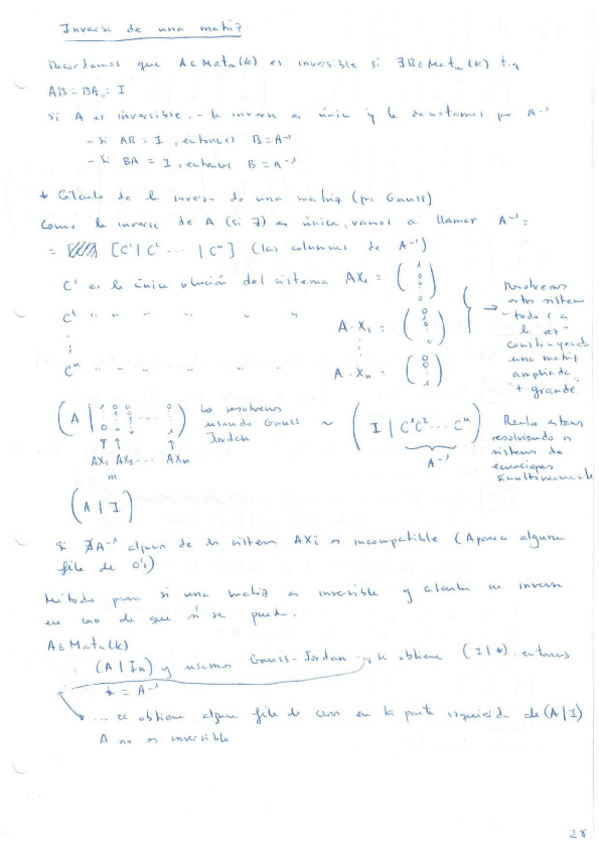 Inversa de una matriz
Recordamos que A∈Matn(k) es inversible si ∃B∈Matn(k) t.q
AB=BA=I
Si A es inversible.- la inversa es única y la denotamos por A⁻¹
- Si AB = I, entonces B=A⁻¹
- Si BA = I, entonces B=A⁻¹
* Cálculo de la inversa de una matriz (por Gauss)
Como la inversa de A (si ∃) es única, vamos a llamar A⁻¹=
= [C¹|C² ... |Cⁿ] (las columnas de A⁻¹)
C¹ es la única solución del sistema AX₁ = (1 0 ⋮ 0)
C² " " " " " " A·X₂ = (0 1 ⋮ 0)
⋮ ⋮
Cⁿ " " " " " " A·Xn = (0 0 ⋮ 1)
→ Resolvemos
estos sistemas
"todos a
la vez"
construyendo
una matriz
ampliada
"+ grande"
(A | 1 0 0 ... 0) Lo resolvemos usando Gauss Jordan ~ (I | C¹C² ... Cⁿ)
AX₁ AX₂ ... AXn
A⁻¹
Realmente estamos
resolviendo n
sistemas de
ecuaciones
simultáneamente
(A | I)
Si ∄A⁻¹ alguno de los sistemas AXi es incompatible (Aparece alguna
fila de 0's)
Método para si una matriz es inversible y calcular su inversa
en caso de que sí se pueda.
A∈Matn(k)
(A|In) y usamos Gauss-Jordan y se obtiene (I|*), entonces
* = A⁻¹
... se obtiene alguna fila de ceros en la parte izquierda de (A|I)
A no es inversible
28